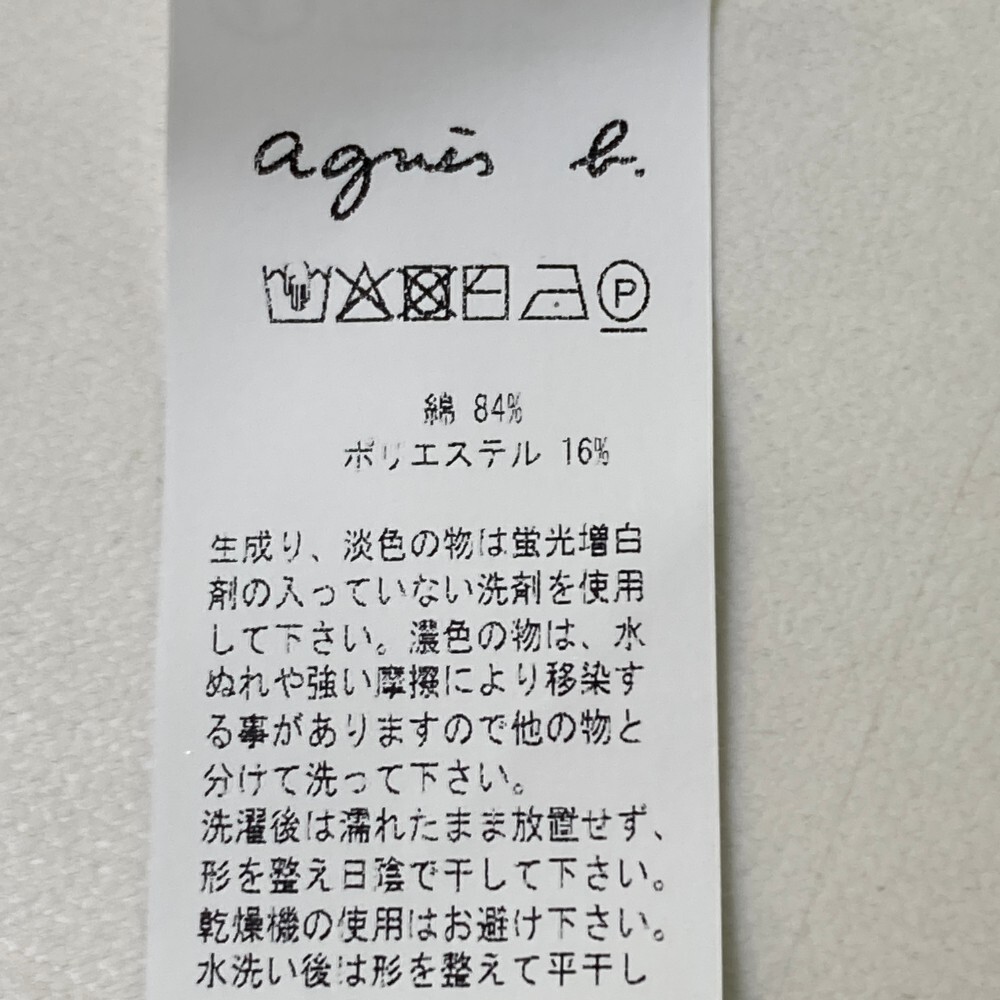 agnès b.
P
綿 84%
ポリエステル 16%
生成り、淡色の物は蛍光増白
剤の入っていない洗剤を使用
して下さい。濃色の物は、水
ぬれや強い摩擦により移染す
る事がありますので他の物と
分けて洗って下さい。
洗濯後は濡れたまま放置せず、
形を整え日陰で干して下さい。
乾燥機の使用はお避け下さい。
水洗い後は形を整えて平干し